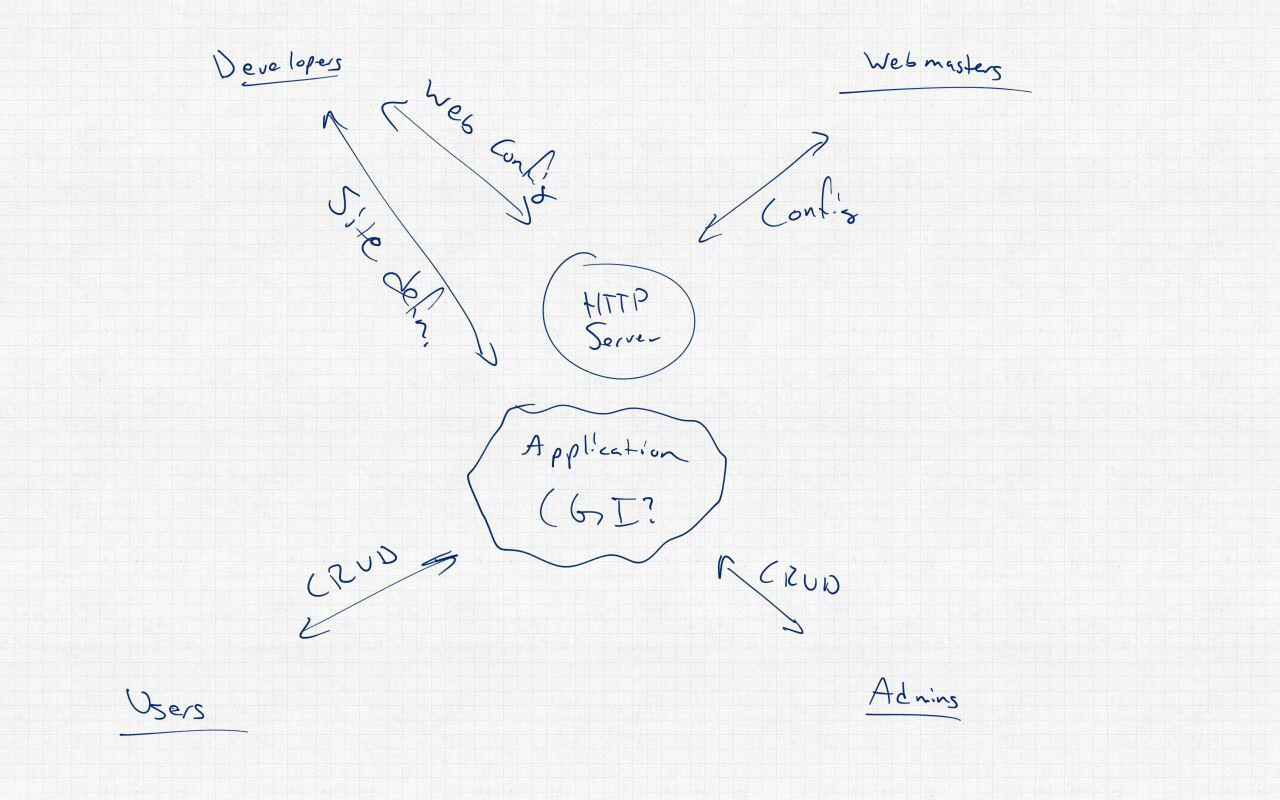 Developers
Webmasters
Web Config
Config
Site def?
HTTP
Server
Application
CGI?
CRUD
CRUD
Users
Admins